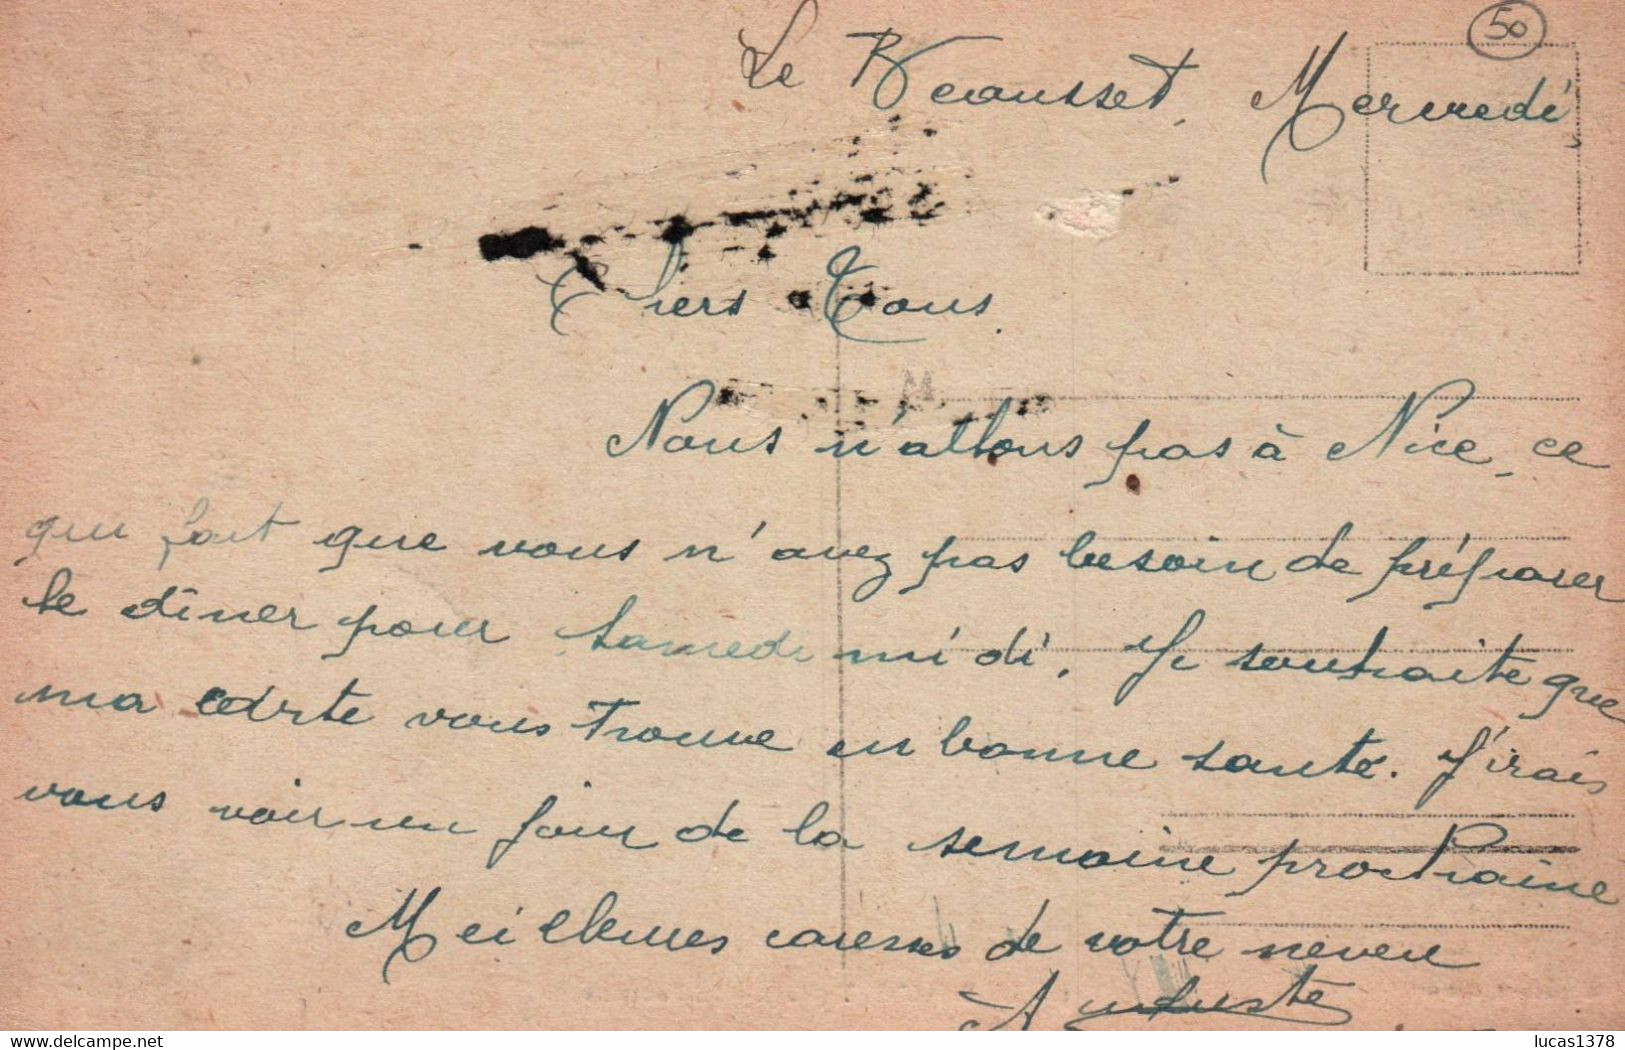 50
Le Beausset, Mercredi
Chers Tous.
M
Nous n'allons pas à Nice, ce
qui fait que vous n'avez pas besoin de préparer
le dîner pour samedi midi. Je souhaite que
ma carte vous trouve en bonne santé. J'irais
vous voir un jour de la semaine prochaine
Meilleures caresses de votre neveu
Auguste
www.delcampe.net
lucas1378